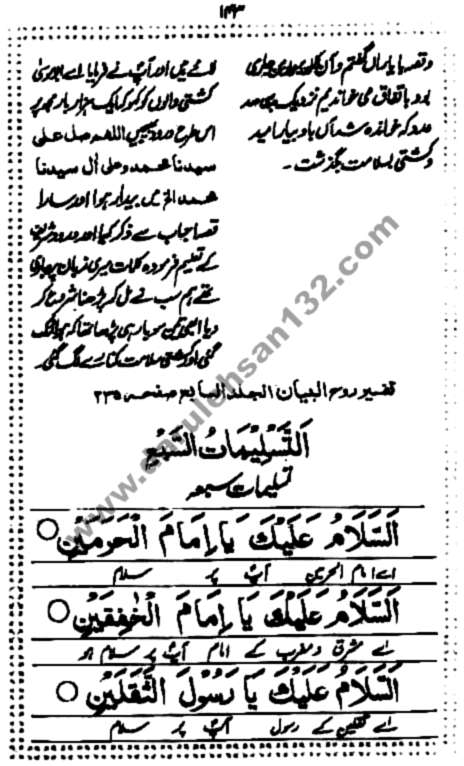 ۱۴۳
و قصہ با یاراں گفتم و آں کلمات
برو باتفاق می خواندیم نزدیک بسی صد
عدد کہ خواندہ شد آں باد بیارامید
و کشتی بسلامت بگذشت۔
لائے ہیں اور آپؐ نے فرمایا اے
کشتی والوں کو کہو کہ ایک ہزار بار مجھ پر
اس طرح درود بھیجیں اللھم صل علی
سیدنا محمد و علی اٰل سیدنا
محمد الخ میں بیدار ہوا اور سارا
قصا احباب سے ذکر کیا اور درود شریف
کے تعلیم فرمودہ کلمات میری زبان پر جاری
تھے ہم سب نے مل کر پڑھنا شروع کر
دیا ابھی تین سو بار ہی پڑھا تھا کہ ہوا رک
گئی اور کشتی سلامت کنارے لگ گئی۔
تفسیر روح البیان الجلد السابع صفحہ ۲۳۵
اَلتَّسْلِیْمَاتُ السَّبْعِ
تسلیمات سبعہ
اَلسَّلَامُ عَلَیْكَ یَا اِمَامَ الْحَرَمَیْنِ
اے امام الحرمین آپؐ پر سلام
اَلسَّلَامُ عَلَیْكَ یَا اِمَامَ الْخٰفِقَیْنِ
اے مشرق و مغرب کے امام آپؐ پر سلام ہو
اَلسَّلَامُ عَلَیْكَ یَا رَسُوْلَ الثَّقَلَیْنِ
اے ثقلین کے رسول آپؐ پر سلام
www.darulehsan132.com